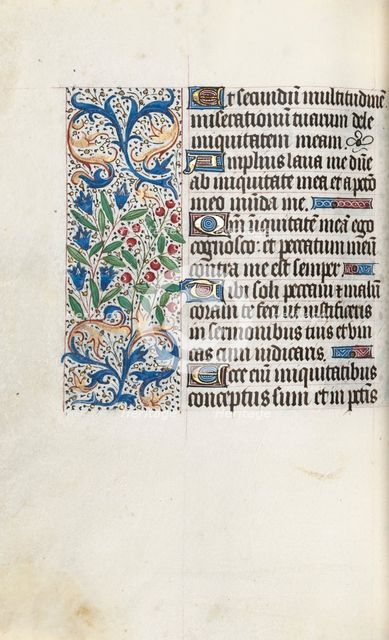 Et secundū multitudinē
miserationū tuarum dele
iniquitatem meam
Amplius laua me dn̄e
ab iniquitate mea et a pctō
meo munda me.
Qm̄ iniquitatē meā ego
cognosco: et peccatum meū
contra me est semper
Tibi soli peccaui et malū
coram te feci ut iustificeris
in sermonibus tuis et vin
cas cum iudicaris.
Ecce eni̅ iniquitatibus
conceptus sum et in pctīs
heritage